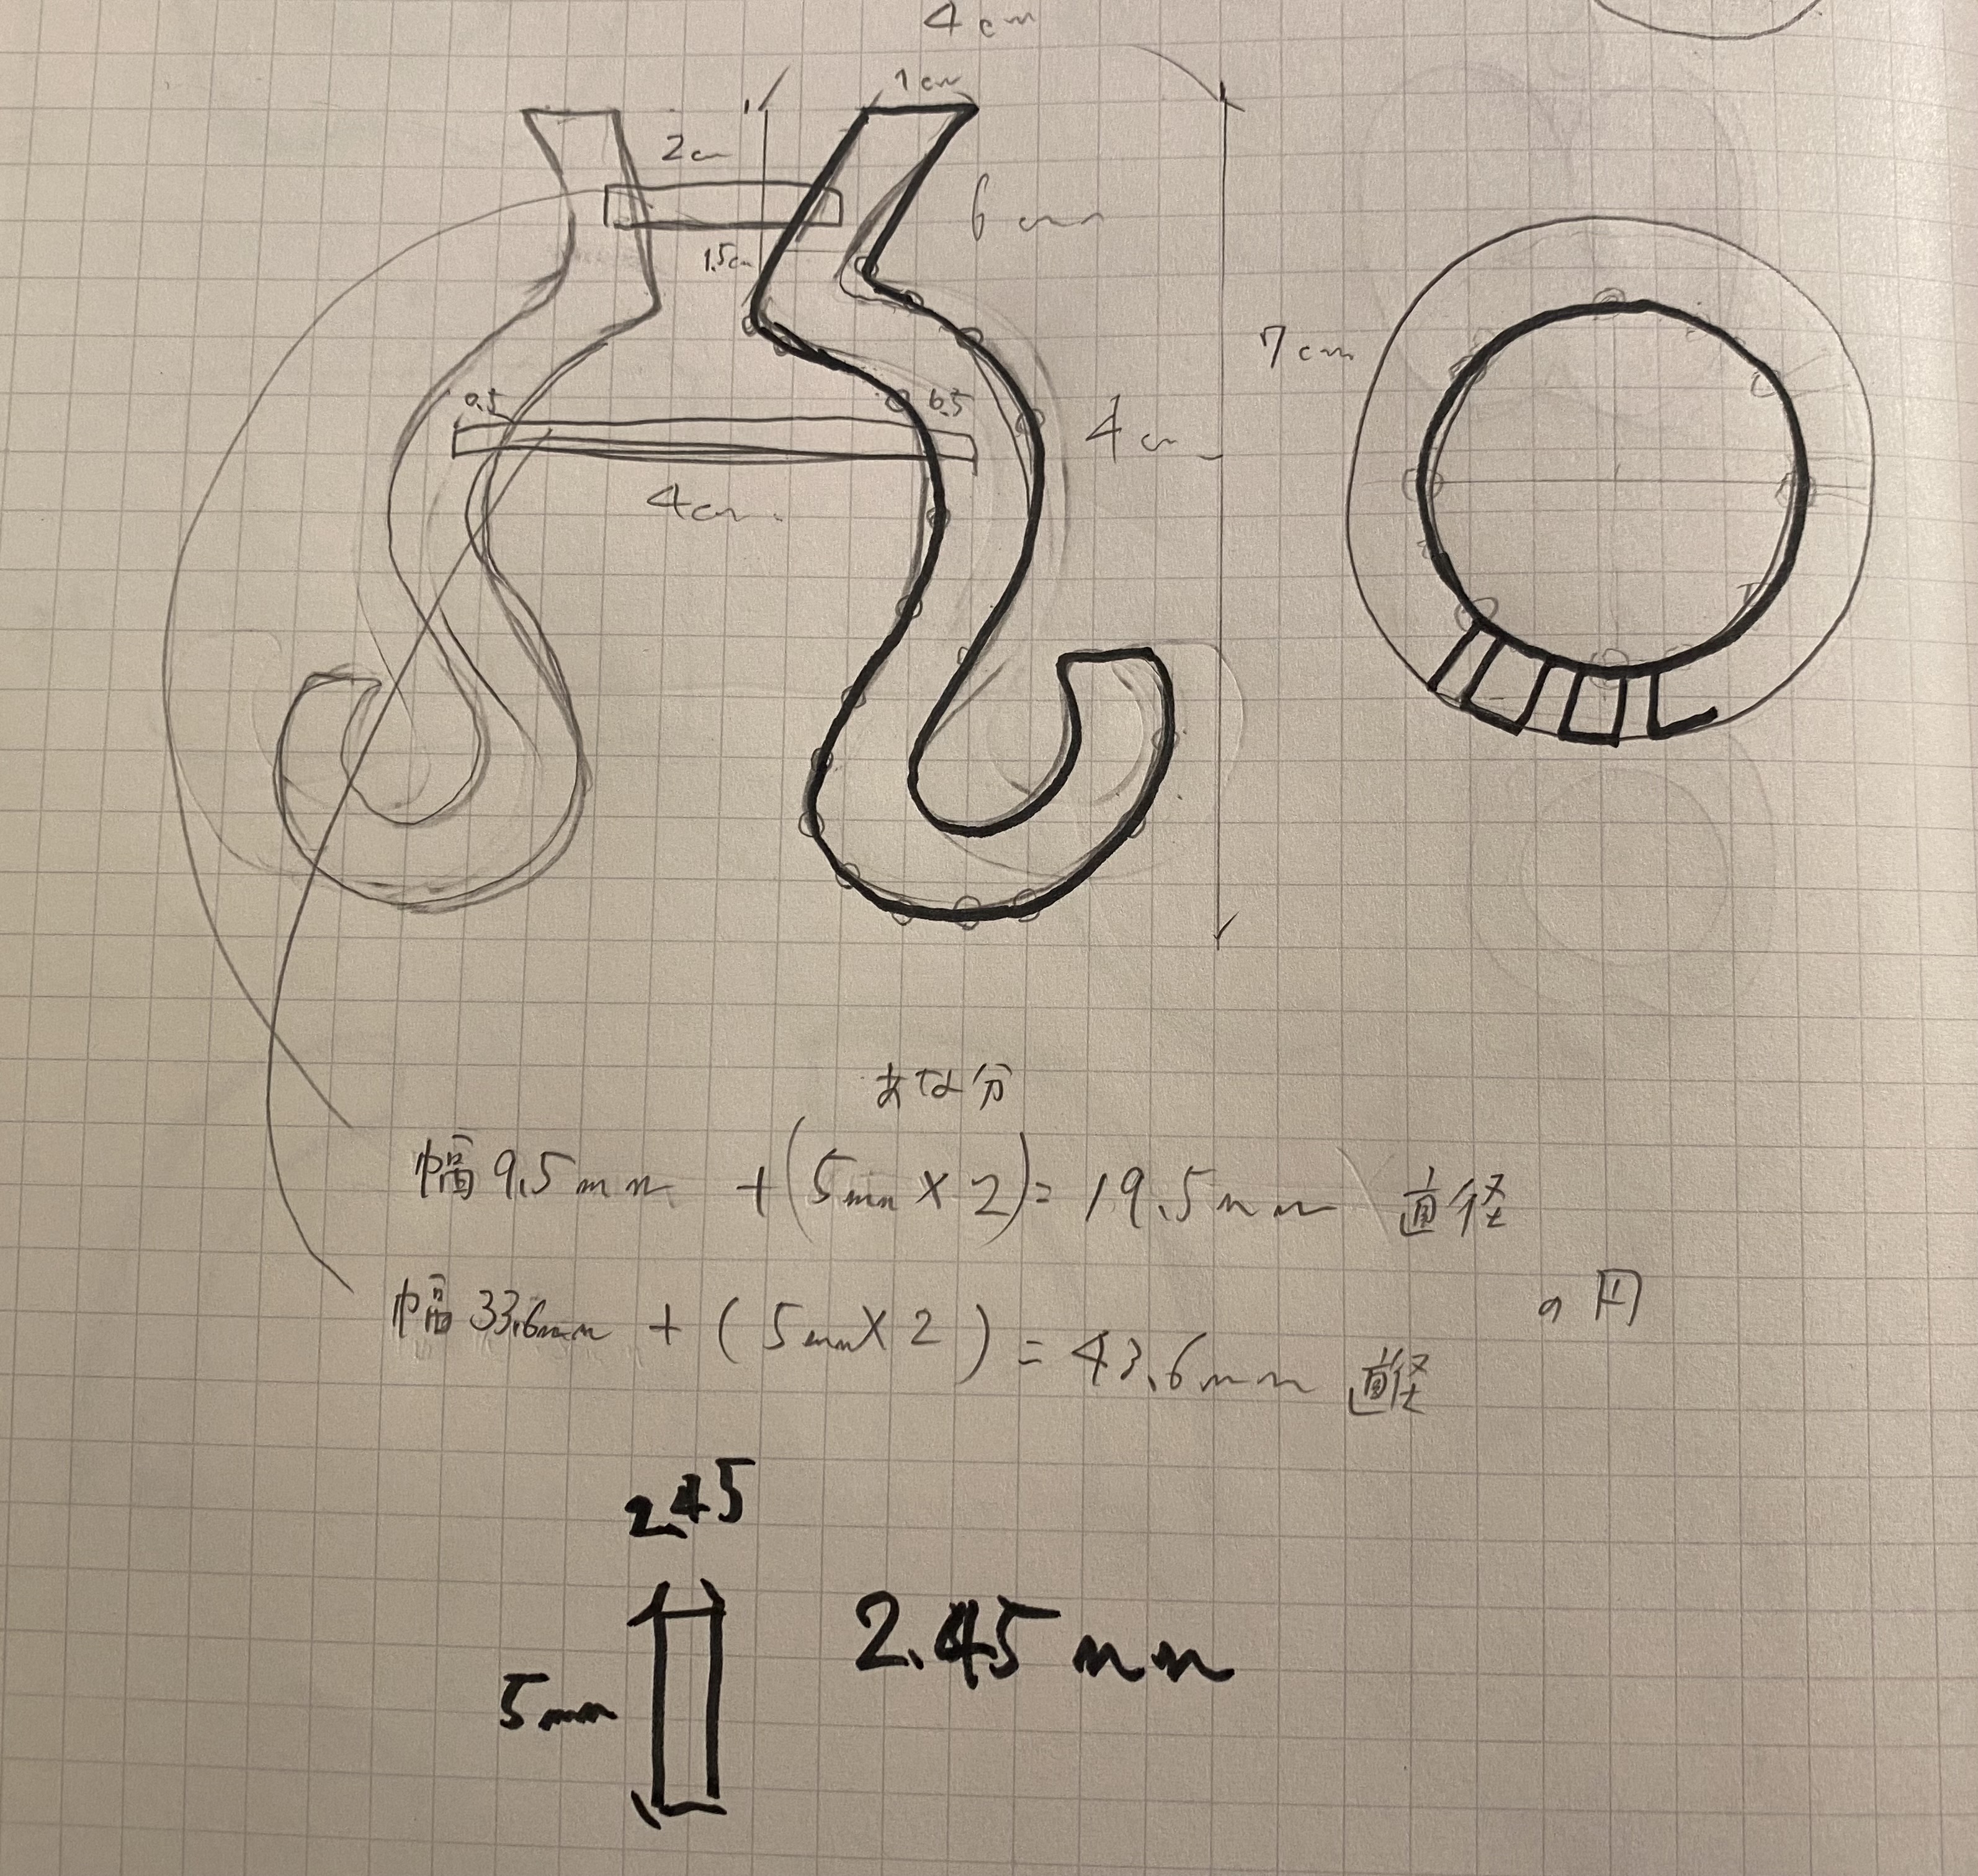 4cm
1cm
2cm
6cm
1.5cm
7cm
0.5
0.5
4cm
4cm
あな分
幅 9.5mm + (5mm × 2) = 19.5mm 直径
の円
幅 33.6mm + (5mm × 2) = 43.6mm 直径
2.45
5mm
2.45mm